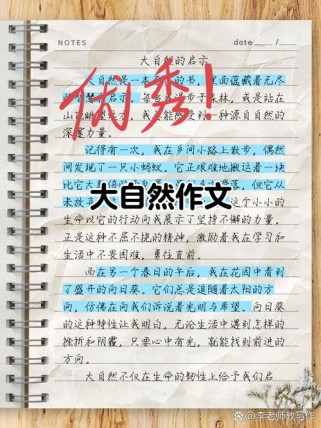 NOTES
date
大自然的启示
大自然 一本 的书，里面蕴藏着无尽
的 启示。每当 步于 林，我是站在
山 我 能 受到一种源自自然的
深 力量。
优秀！
记得有一次，我在乡间小路上散步，偶然
间发现了一只小蚂蚁。它正艰难地搬运着一块
比它大 落，但它从
未放弃 这个小小的
大自然作文
生命以它的行动向我展示了坚持不懈的力量。
正是这种不屈不挠的精神，激励着我在学习和
生活中不畏困难，勇往直前。
而在另一个春日的午后，我在花园中看到
了盛开的向日葵。它们总是追随着太阳的方
向，仿佛在向我们诉说着光明与希望。向日葵
的这种特性让我明白，无论生活中遇到怎样的
挫折和阴霾，只要心中有光，就能找到前进的
方向。
大自然不仅在生命的韧性上给予我们启
@李老师教写作